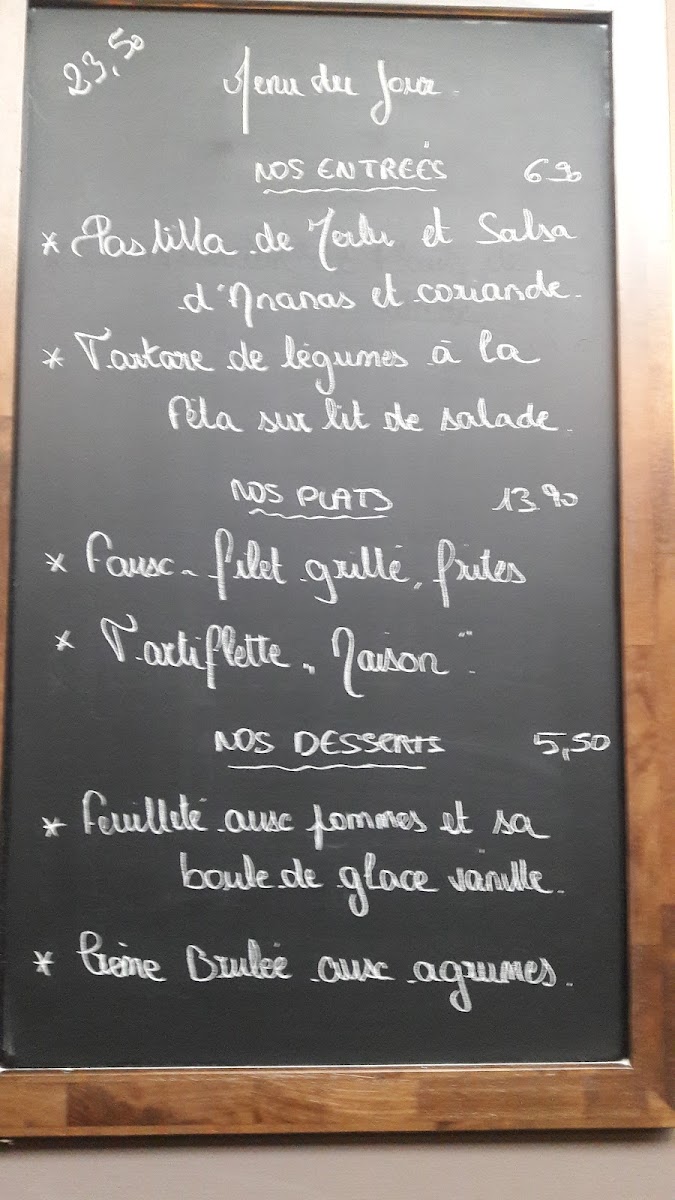 23,50
Menu du Jour.
NOS ENTREÉS 6 90
* Pastilla de Merlu et Salsa
d'Ananas et coriande.
* Tartare de légumes à la
Féta sur lit de salade.
NOS PLATS 13 90
* Faux-filet grillé, frites
* Tartiflette "Maison".
NOS DESSERTS 5,50
* Feuilleté aux pommes et sa
boule de glace vanille.
* Crème Brulée aux agrumes.